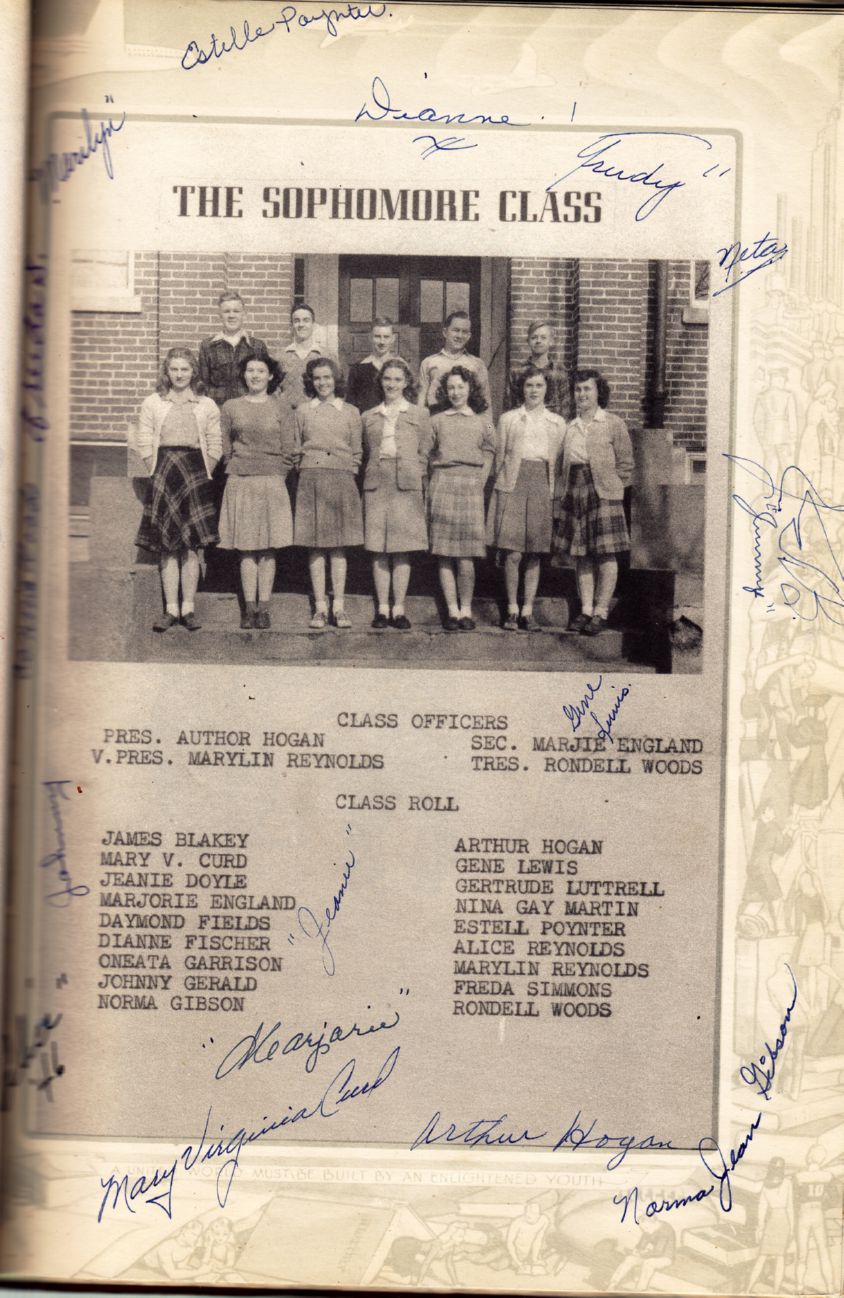 Estelle Poynter.
Dianne !
"Marilyn"
Trudy"
THE SOPHOMORE CLASS
Neta
Gene
Lewis.
CLASS OFFICERS
PRES. AUTHOR HOGAN SEC. MARJIE ENGLAND
V.PRES. MARYLIN REYNOLDS TRES. RONDELL WOODS
CLASS ROLL
Johnny
JAMES BLAKEY ARTHUR HOGAN
MARY V. CURD GENE LEWIS
JEANIE DOYLE GERTRUDE LUTTRELL
MARJORIE ENGLAND NINA GAY MARTIN
DAYMOND FIELDS ESTELL POYNTER
DIANNE FISCHER ALICE REYNOLDS
ONEATA GARRISON MARYLIN REYNOLDS
JOHNNY GERALD FREDA SIMMONS
NORMA GIBSON RONDELL WOODS
"Jeanie"
"Marjorie"
Mary Virginia Curd
Arthur Hogan
Norma Jean Gibson
A UNITED WORLD MUST BE BUILT BY AN ENLIGHTENED YOUTH